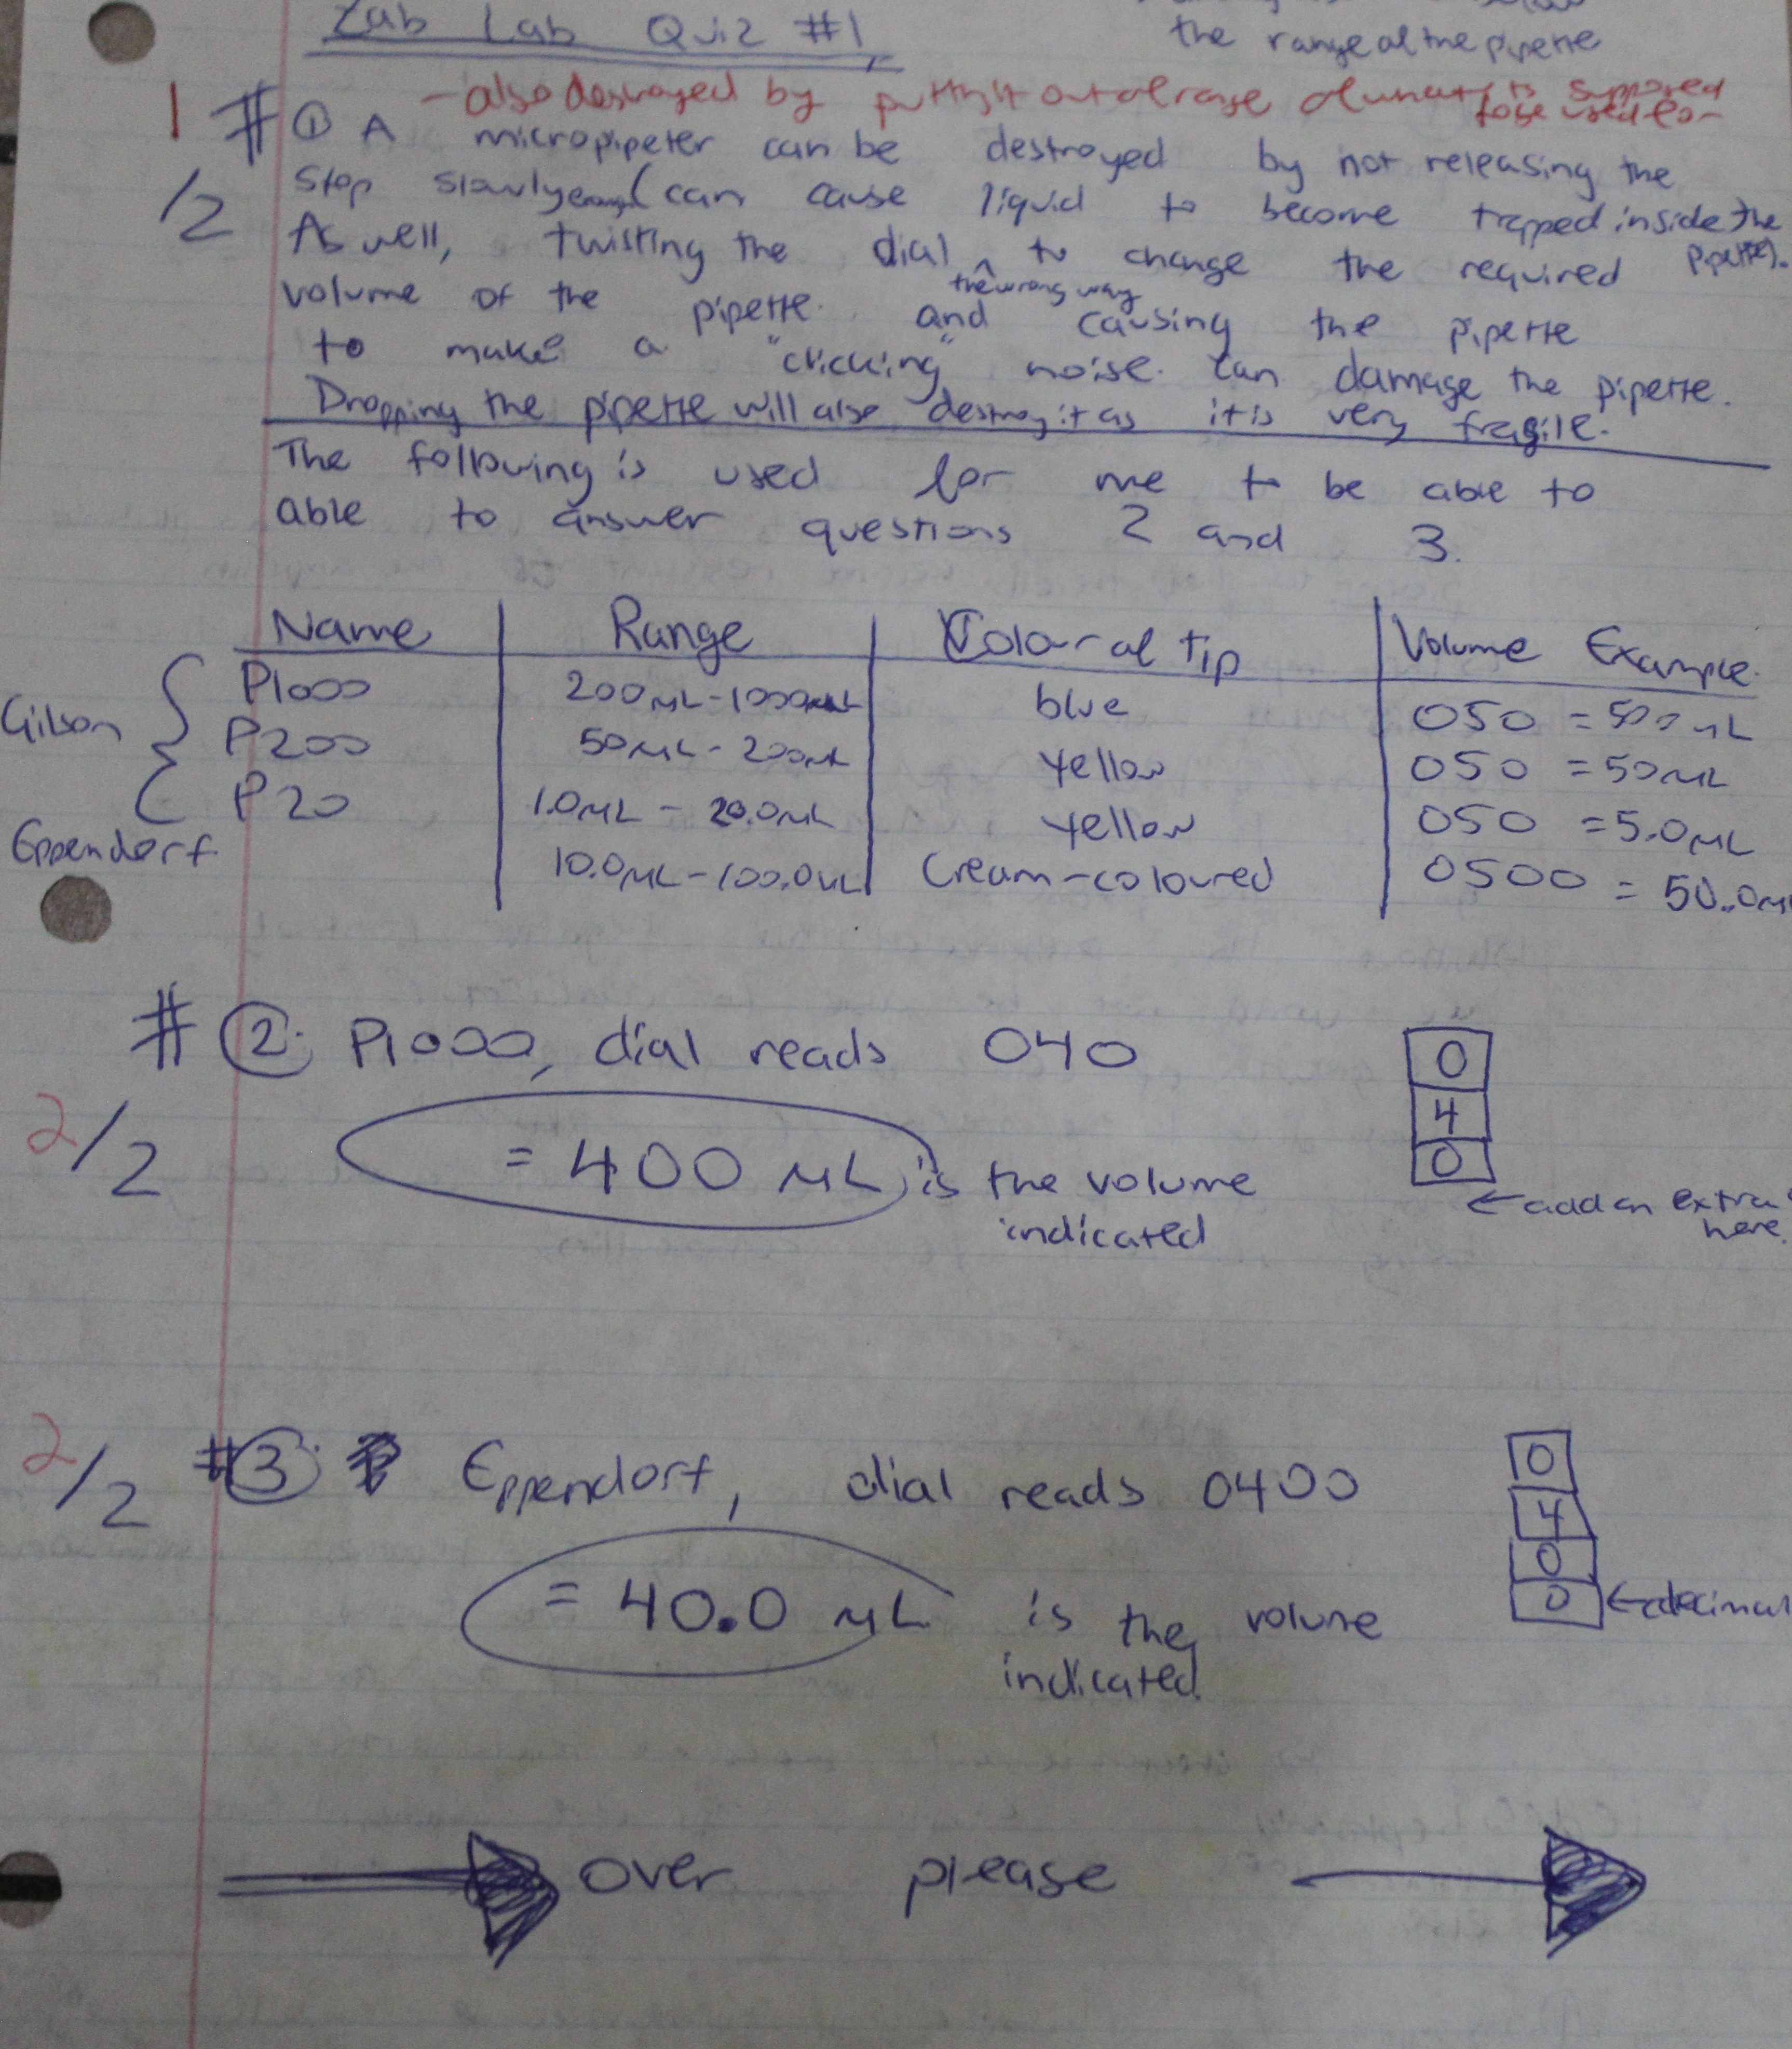 Lab Quiz #1
the range of the pipette
- also destroyed by putting it out of range of what it is supposed
to be used for
1
/2
# ① A micropipeter can be destroyed by not releasing the
stop slowly enough (can cause liquid to become trapped inside the
pipette).
As well, twisting the dial ^ to change the required
the wrong way
volume of the pipette and causing the pipette
to make a "clicking" noise. Can damage the pipette.
Dropping the pipette will also destroy it as it is very fragile.
The following is used for me to be able to
able to answer questions 2 and 3.
Name Range Colour of tip Volume Example
Gilson
P1000 200μL-1000μL blue 050 = 500μL
P200 50μL - 200μL yellow 050 = 50μL
P20 1.0μL - 20.0μL yellow 050 = 5.0μL
Eppendorf 10.0μL-100.0μL Cream-coloured 0500 = 50.0μL
# ②. P1000, dial reads 040
2/2
= 400 μL is the volume
indicated
0
4
0
← add an extra
here.
2/2
#③. Eppendorf, dial reads 0400
= 40.0 μL is the volume
indicated.
0
4
0
0 ← decimal
over please